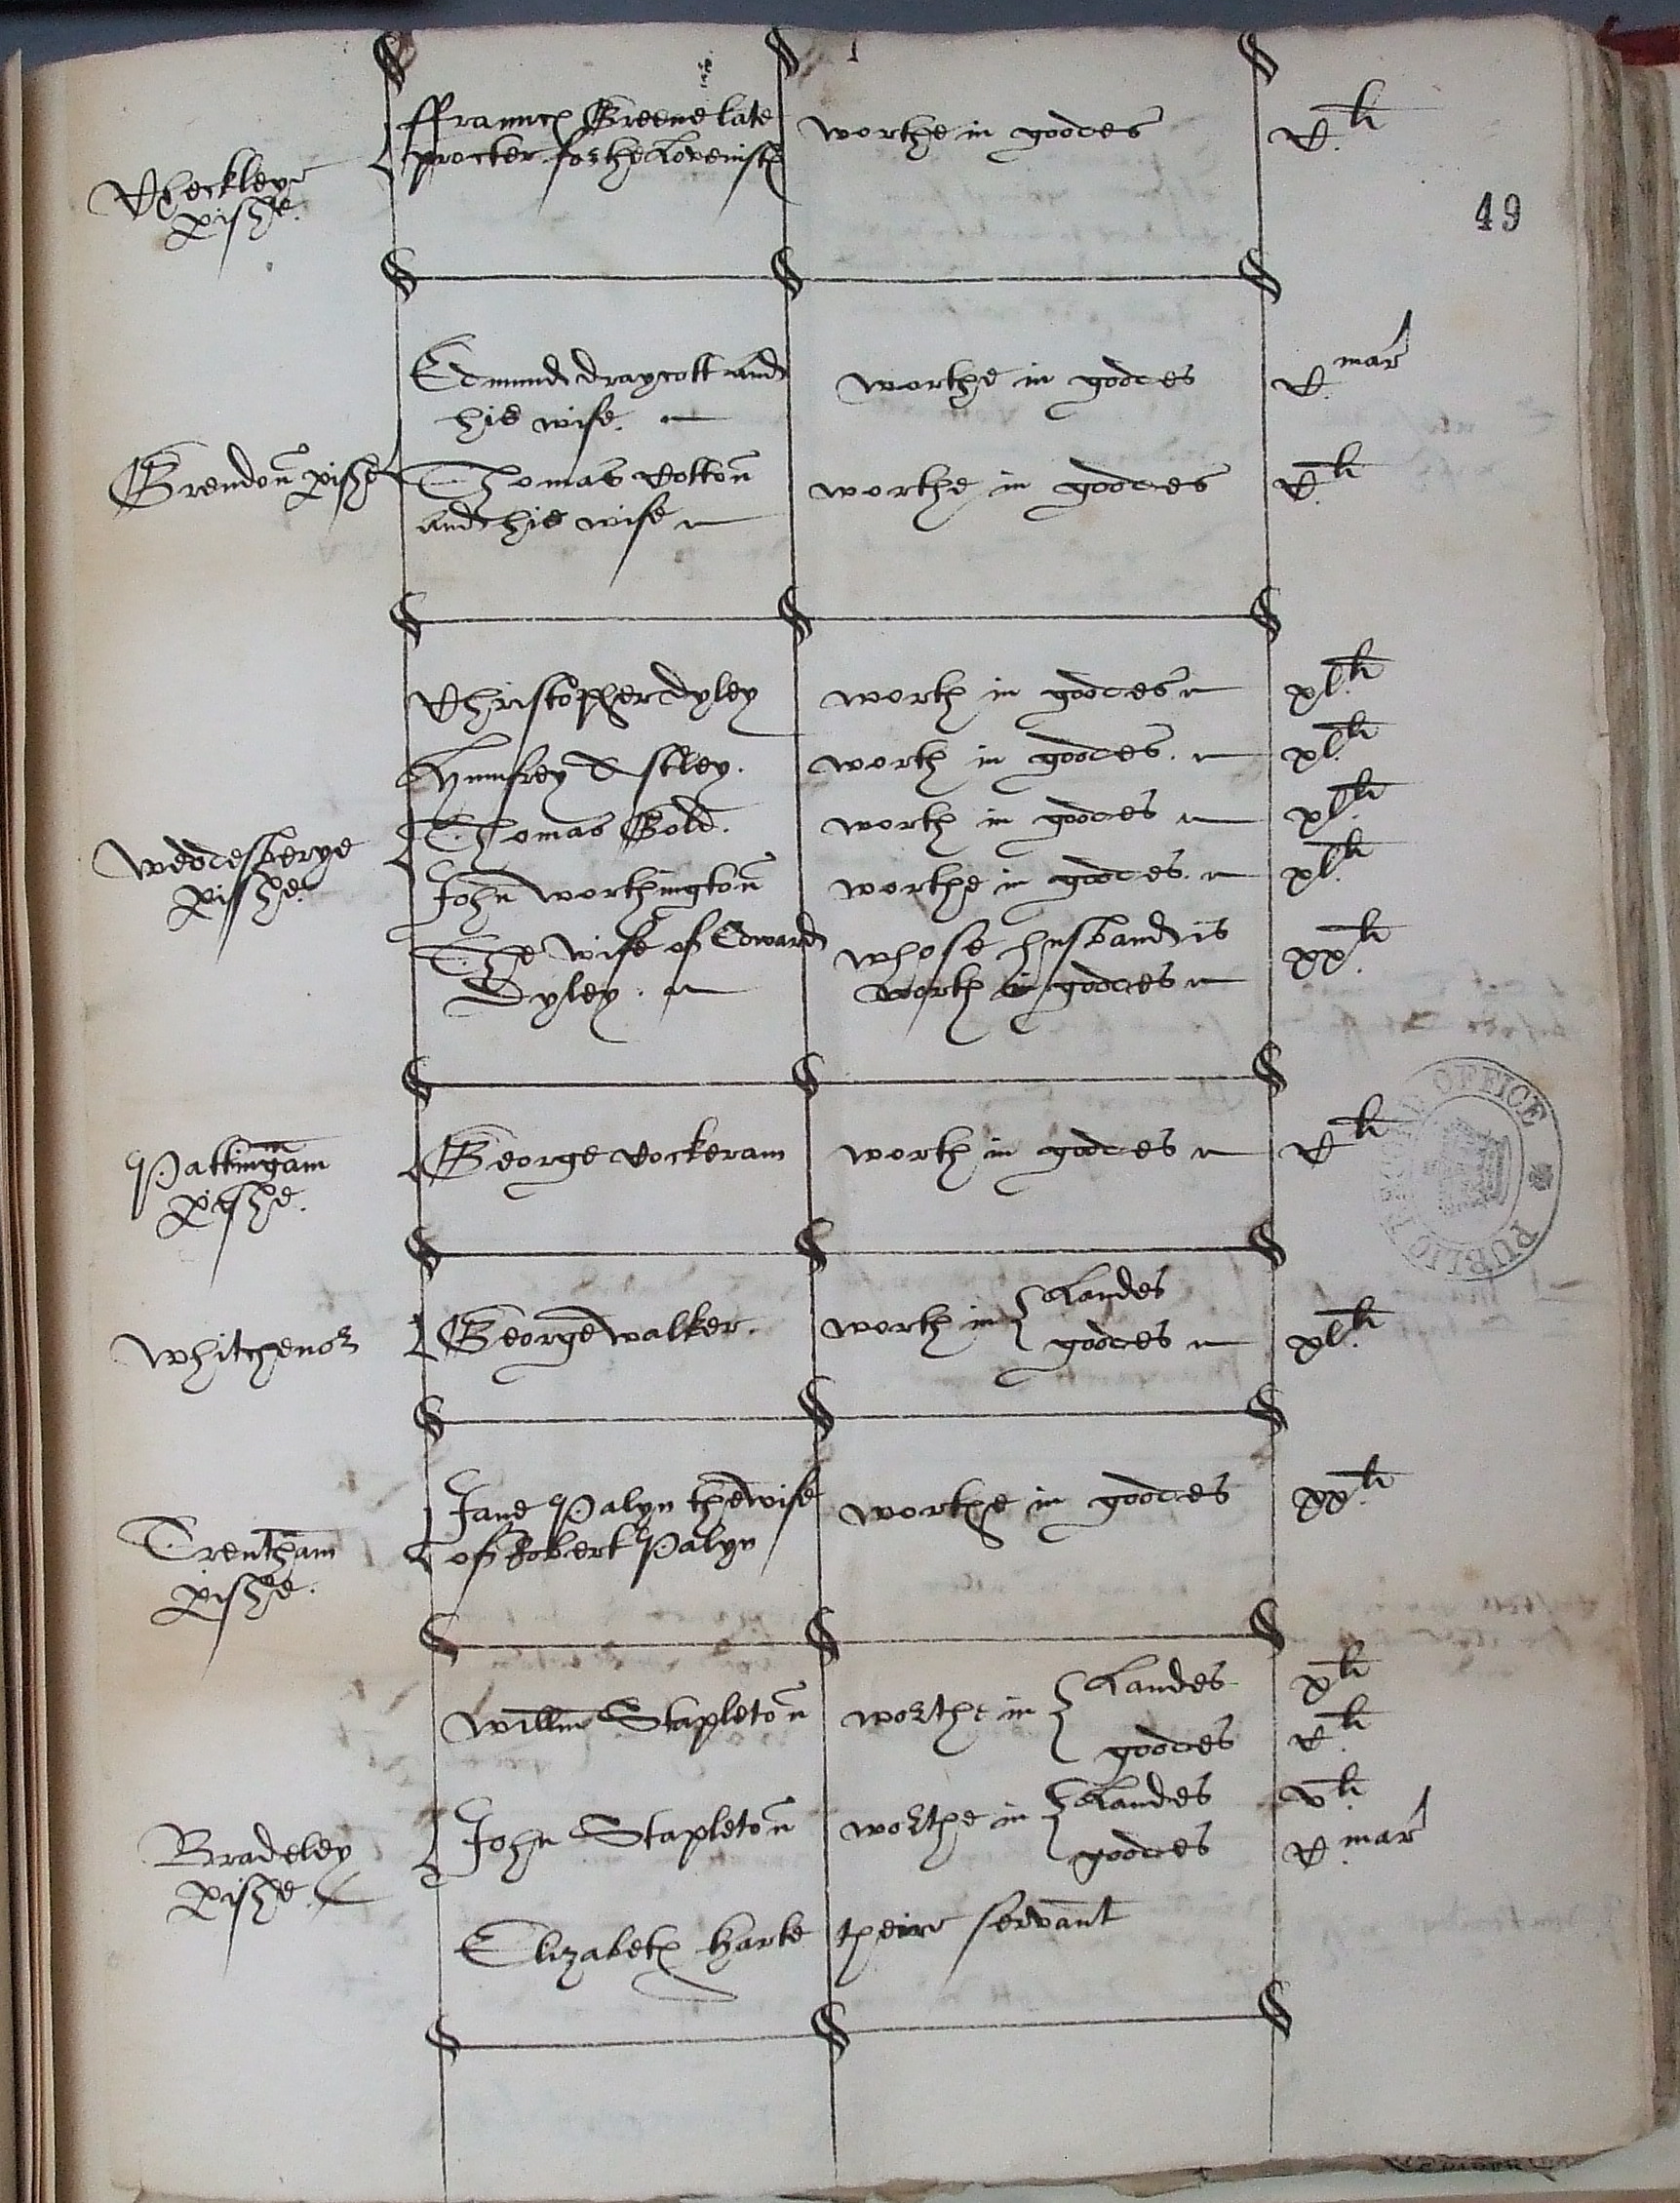 Checkley pishe.
ffraunc Greene late worthe in goodes C li
procter for the Lovenist
49
Edmund draycott and worthe in goodes C mar
his wife.
Grendon pishe
Thomas Cotton worthe in goodes C li
and his wife
Christopher dyley worth in goodes xl li
Humfrey Astley. worth in goodes. xl li
Weddesberye pishe.
Thomas Gold. worth in goodes xl li
John Worthington worthe in goodes. xl li
The wife of Edward whose husband is xx li
Dyley. worth in goodes
Pattingam pishe.
George Cockeram worth in goodes C li
PUBLIC RECORD OFFICE
Whitchenor
George walker. worth in Landes
goodes xl li
Trentham pishe.
Jane Palyn the wife worthe in goodes xx li
of Robert Palyn
Willm Stapleton worthe in Landes x li
goodes C li
Bradeley pishe
John Stapleton worthe in Landes v li
goodes C mar
Elizabeth Harte theire servant